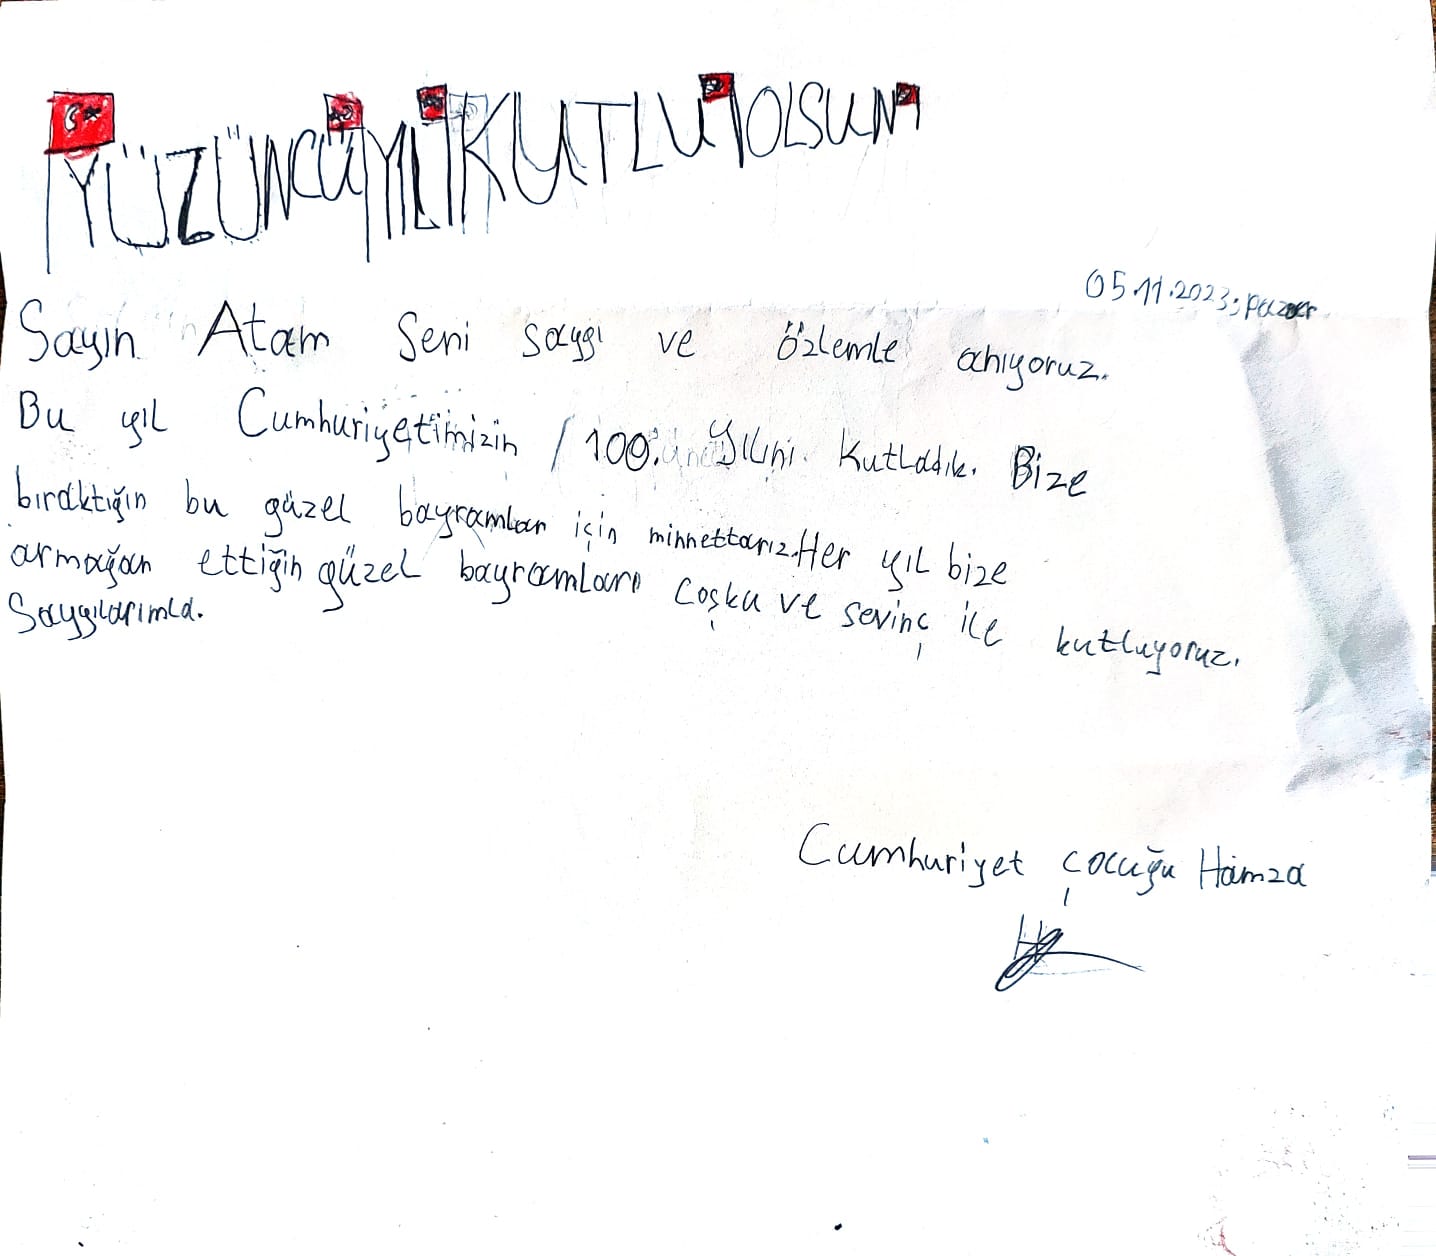 YÜZÜNCÜ YIL KUTLU OLSUN
05.11.2023; pazar
Sayın Atam Seni saygı ve özlemle anıyoruz.
Bu yıl Cumhuriyetimizin 100. yılını kutladık. Bize
bıraktığın bu güzel bayramlar için minnettarız. Her yıl bize
armağan ettiğin güzel bayramları coşku ve sevinç ile kutluyoruz.
Saygılarımla.
Cumhuriyet çocuğu Hamza